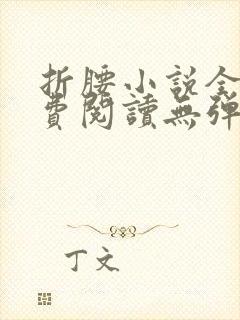 折腰小說全
費閱讀無彈
丁文